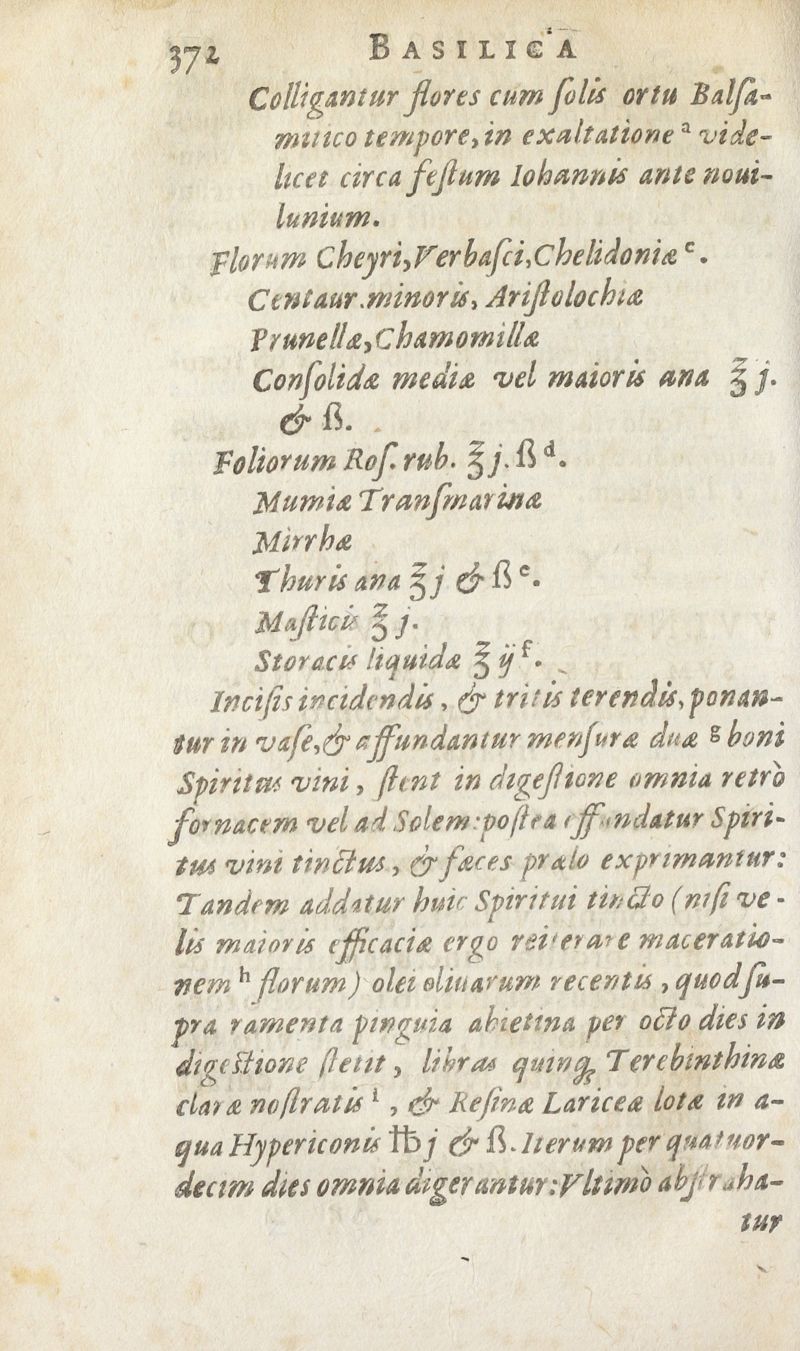 372 BASILICA
Colligantur flores cum ſolis ortu Balſa-
mitico tempore, in exaltatione ᵃ vide-
licet circa feſtum Iohannis ante noui-
lunium.
Florum Cheyri, Verbaſci, Chelidoniæ ᶜ.
Centaur. minoris, Ariſtolochiæ
Prunellæ, Chamomillæ
Conſolidæ mediæ vel maioris ana ℥ j.
& ß.
Foliorum Roſ. rub. ℥ j. ß ᵈ.
Mumiæ Tranſmarinæ
Mirrhæ
Thuris ana ℥ j & ß ᵉ.
Maſticis ℥ j.
Storacis liquidæ ℥ ij ᶠ.
Inciſis incidendis, & tritis terendis, ponan-
tur in vaſe, & affundantur menſuræ duæ ᵍ boni
Spiritus vini, ſtent in digeſtione omnia retrò
fornacem vel ad Solem: poſtea effundatur Spiri-
tus vini tinctus, & fæces prælo exprimantur:
Tandem addatur huic Spiritui tincto (niſi ve-
lis maioris efficaciæ ergo reiterare maceratio-
nem ʰ florum) olei oliuarum recentis, quod ſu-
pra ramenta pinguia abietina per octo dies in
digeſtione ſtetit, libras quinq; Terebinthinæ
claræ noſtratis ⁱ, & Reſinæ Lariceæ lotæ in a-
qua Hypericonis ℔ j & ß. Iterum per quatuor-
decim dies omnia digerantur: Vltimò abſtraha-
tur